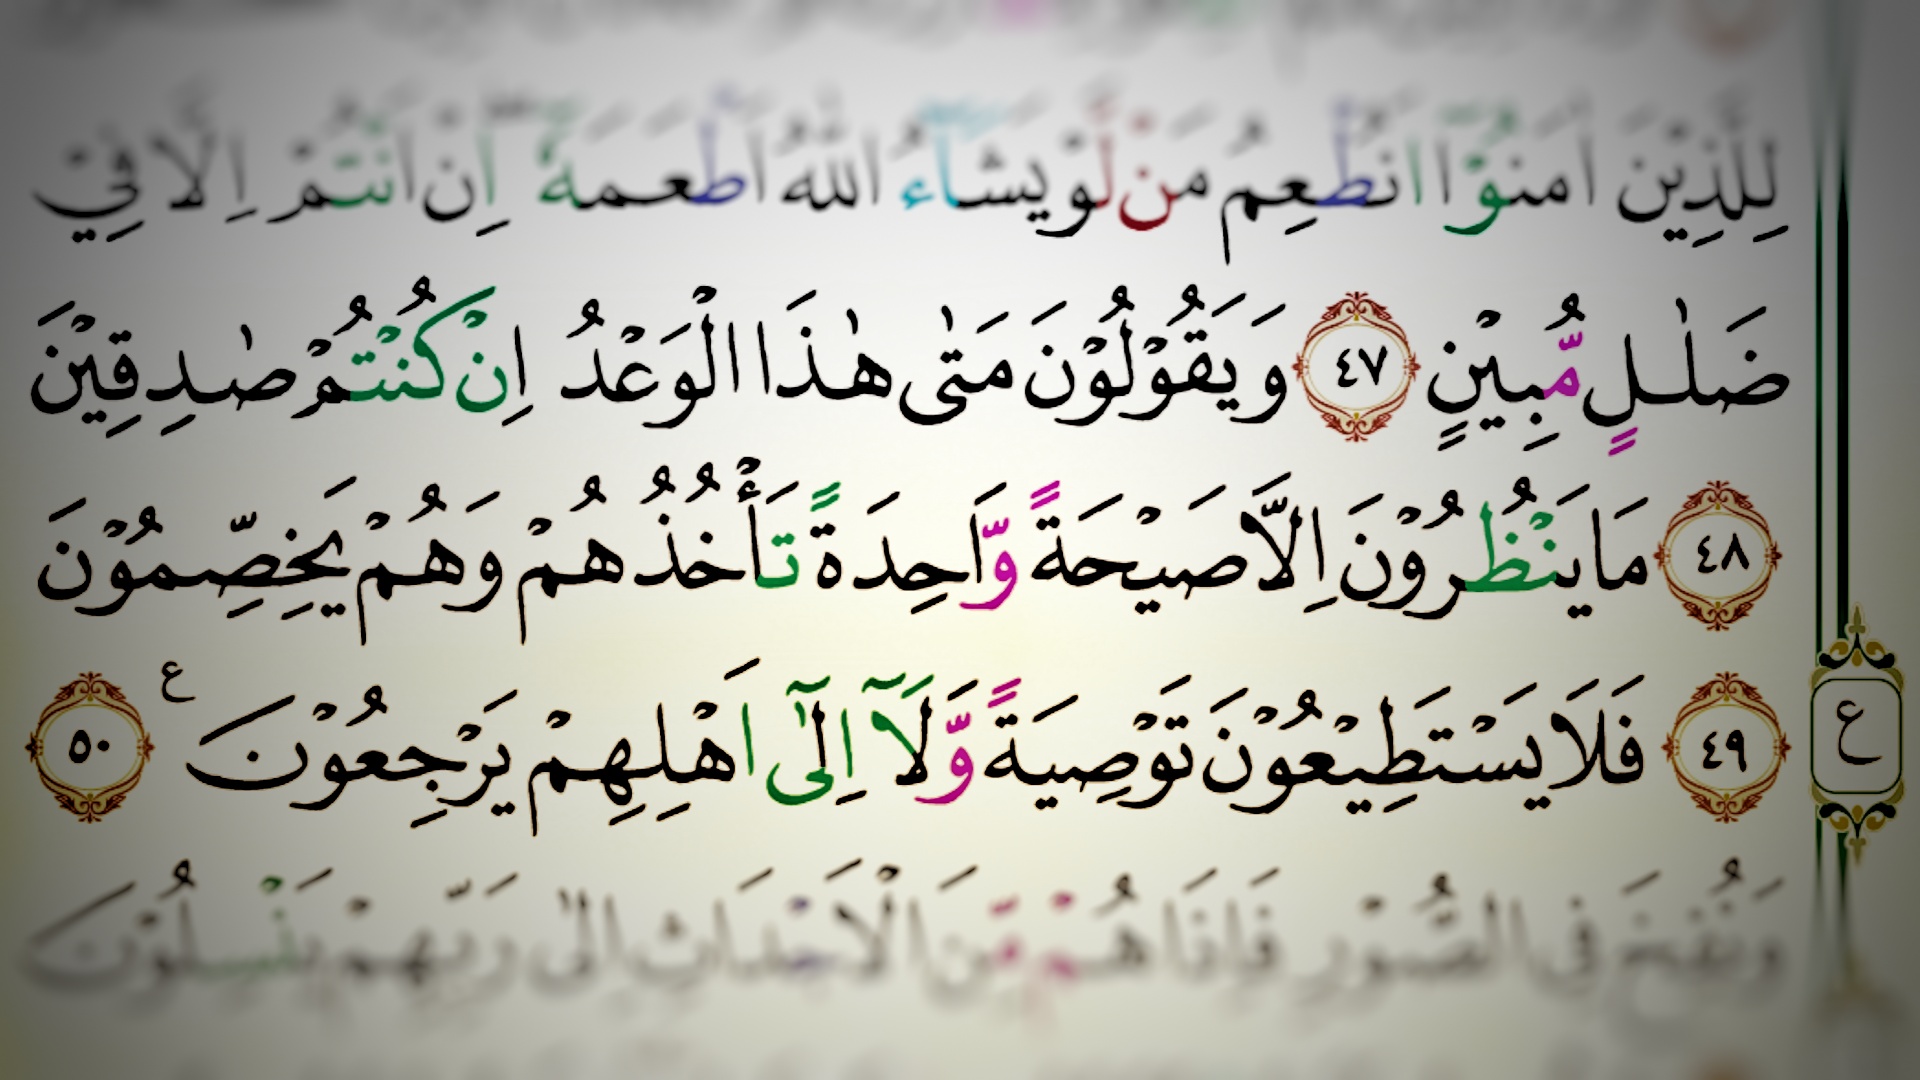 لِلَّذِيْنَ اٰمَنُوْۤا اَنُطْعِمُ مَنْ لَّوْ يَشَآءُ اللّٰهُ اَطْعَمَهٗۤ اِنْ اَنْتُمْ اِلَّا فِيْ
ضَلٰلٍ مُّبِيْنٍ ٤٧ وَيَقُوْلُوْنَ مَتٰى هٰذَا الْوَعْدُ اِنْ كُنْتُمْ صٰدِقِيْنَ
٤٨ مَا يَنْظُرُوْنَ اِلَّا صَيْحَةً وَّاحِدَةً تَأْخُذُهُمْ وَهُمْ يَخِصِّمُوْنَ
٤٩ فَلَا يَسْتَطِيْعُوْنَ تَوْصِيَةً وَّلَاۤ اِلٰٓى اَهْلِهِمْ يَرْجِعُوْنَ ࣖ ٥٠
ع
وَنُفِخَ فِى الصُّوْرِ فَاِذَا هُمْ مِّنَ الْاَجْدَاثِ اِلٰى رَبِّهِمْ يَنْسِلُوْنَ